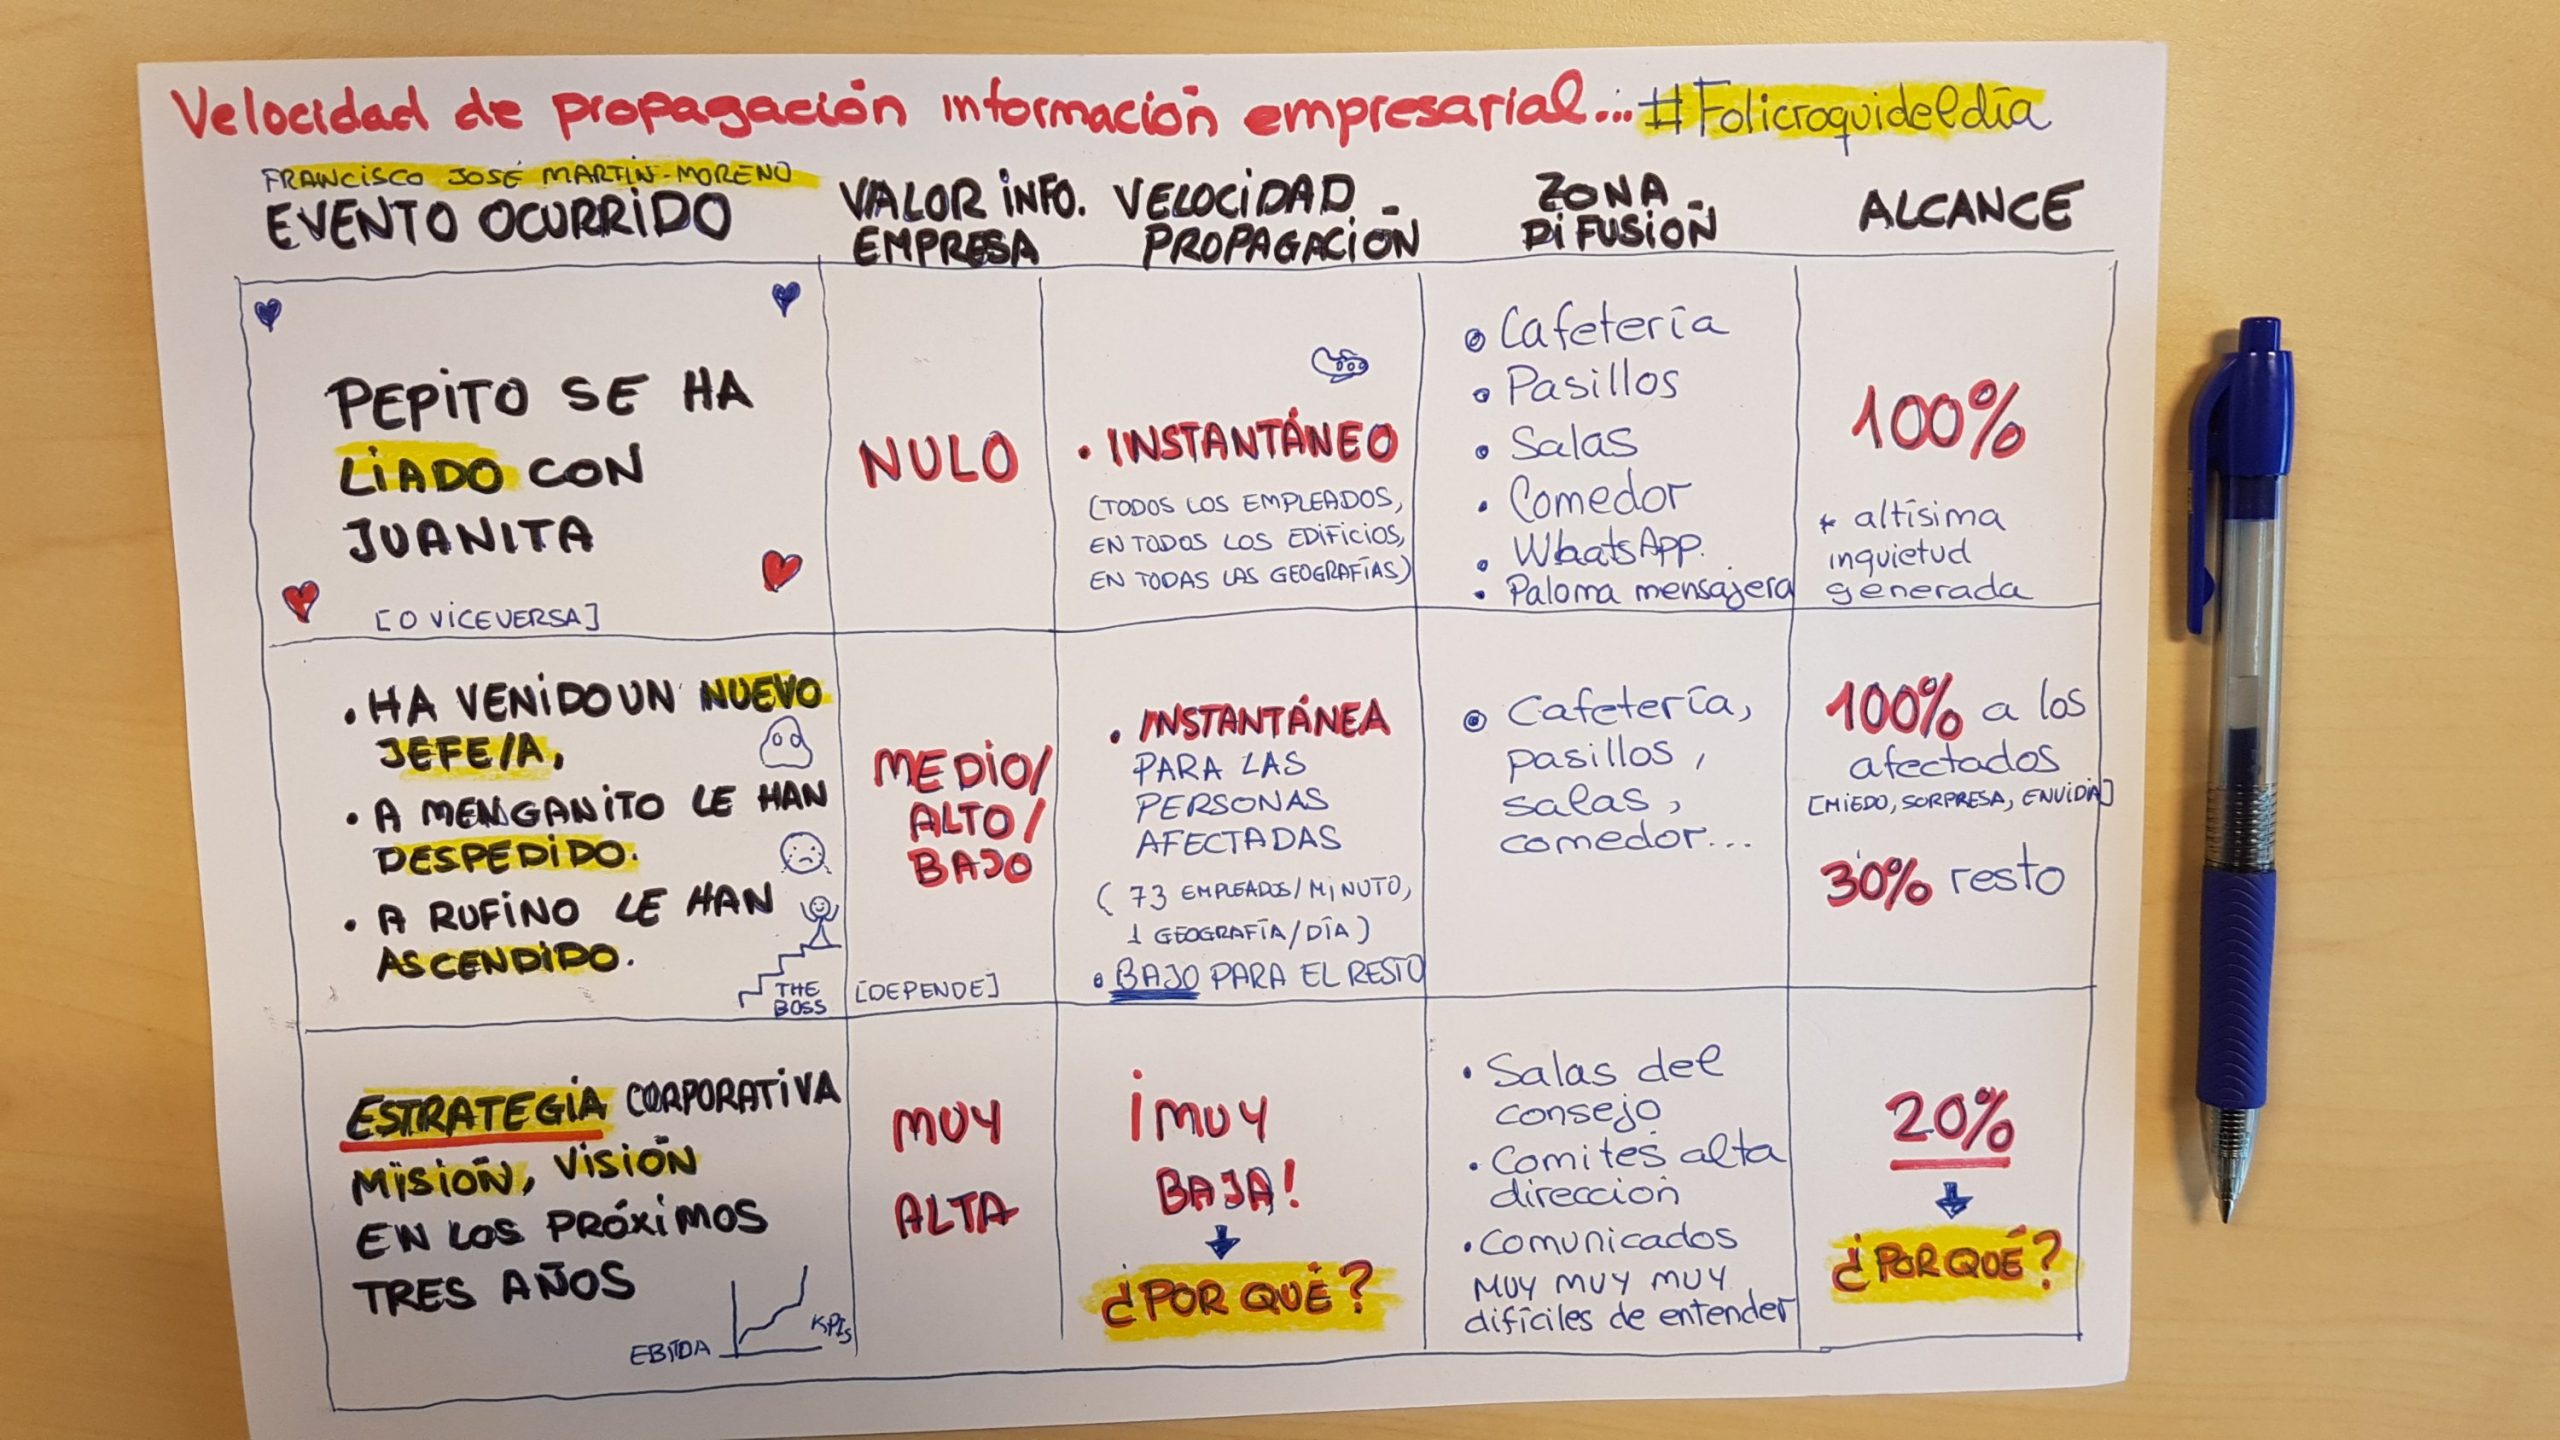 Velocidad de propagación información empresarial... #Folicroquideldía
FRANCISCO JOSÉ MARTÍN-MORENO
EVENTO OCURRIDO
VALOR INFO.
EMPRESA
VELOCIDAD
PROPAGACIÓN
ZONA
DIFUSIÓN
ALCANCE
PEPITO SE HA
LIADO CON
JUANITA
[O VICEVERSA]
NULO
• INSTANTÁNEO
(TODOS LOS EMPLEADOS,
EN TODOS LOS EDIFICIOS,
EN TODAS LAS GEOGRAFÍAS)
• Cafetería
• Pasillos
• Salas
• Comedor
• WhatsApp.
• Paloma mensajera
100%
* altísima
inquietud
generada
• HA VENIDO UN NUEVO
JEFE/A,
• A MENGANITO LE HAN
DESPEDIDO.
• A RUFINO LE HAN
ASCENDIDO.
THE
BOSS
MEDIO/
ALTO/
BAJO
[DEPENDE]
• INSTANTÁNEA
PARA LAS
PERSONAS
AFECTADAS
(73 EMPLEADOS/MINUTO,
1 GEOGRAFÍA/DÍA)
• BAJO PARA EL RESTO
• Cafetería,
pasillos,
salas,
comedor...
100% a los
afectados
[MIEDO, SORPRESA, ENVIDIA]
30% resto
ESTRATEGIA CORPORATIVA
MISIÓN, VISIÓN
EN LOS PRÓXIMOS
TRES AÑOS
EBITDA
KPIs
MUY
ALTA
¡MUY
BAJA!
¿POR QUÉ?
• Salas del
consejo
• Comités alta
dirección
• Comunicados
MUY MUY MUY
difíciles de entender
20%
¿POR QUÉ?